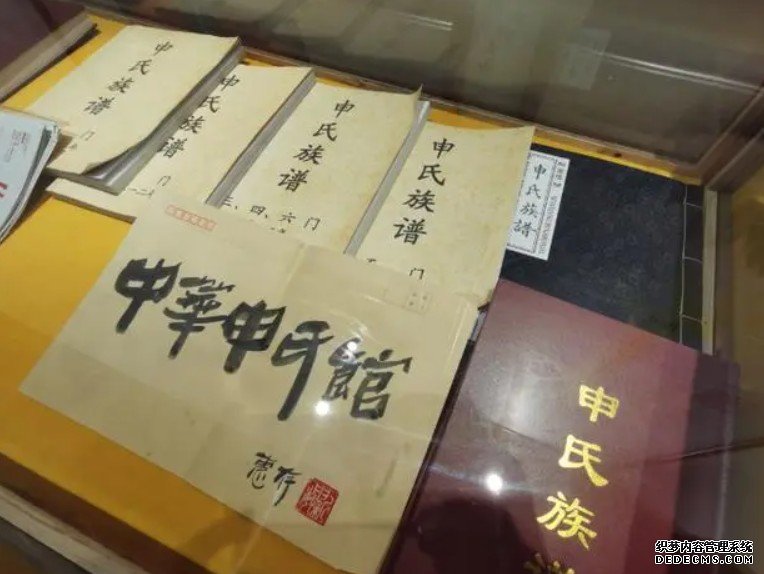 申氏族谱
门
申氏族谱
门
一二
申氏族谱
三、四、六门
申氏族谱
门
申氏族譜
中華申氏館
惠存
申氏族
织梦内容管理系统
DEDECMS.COM